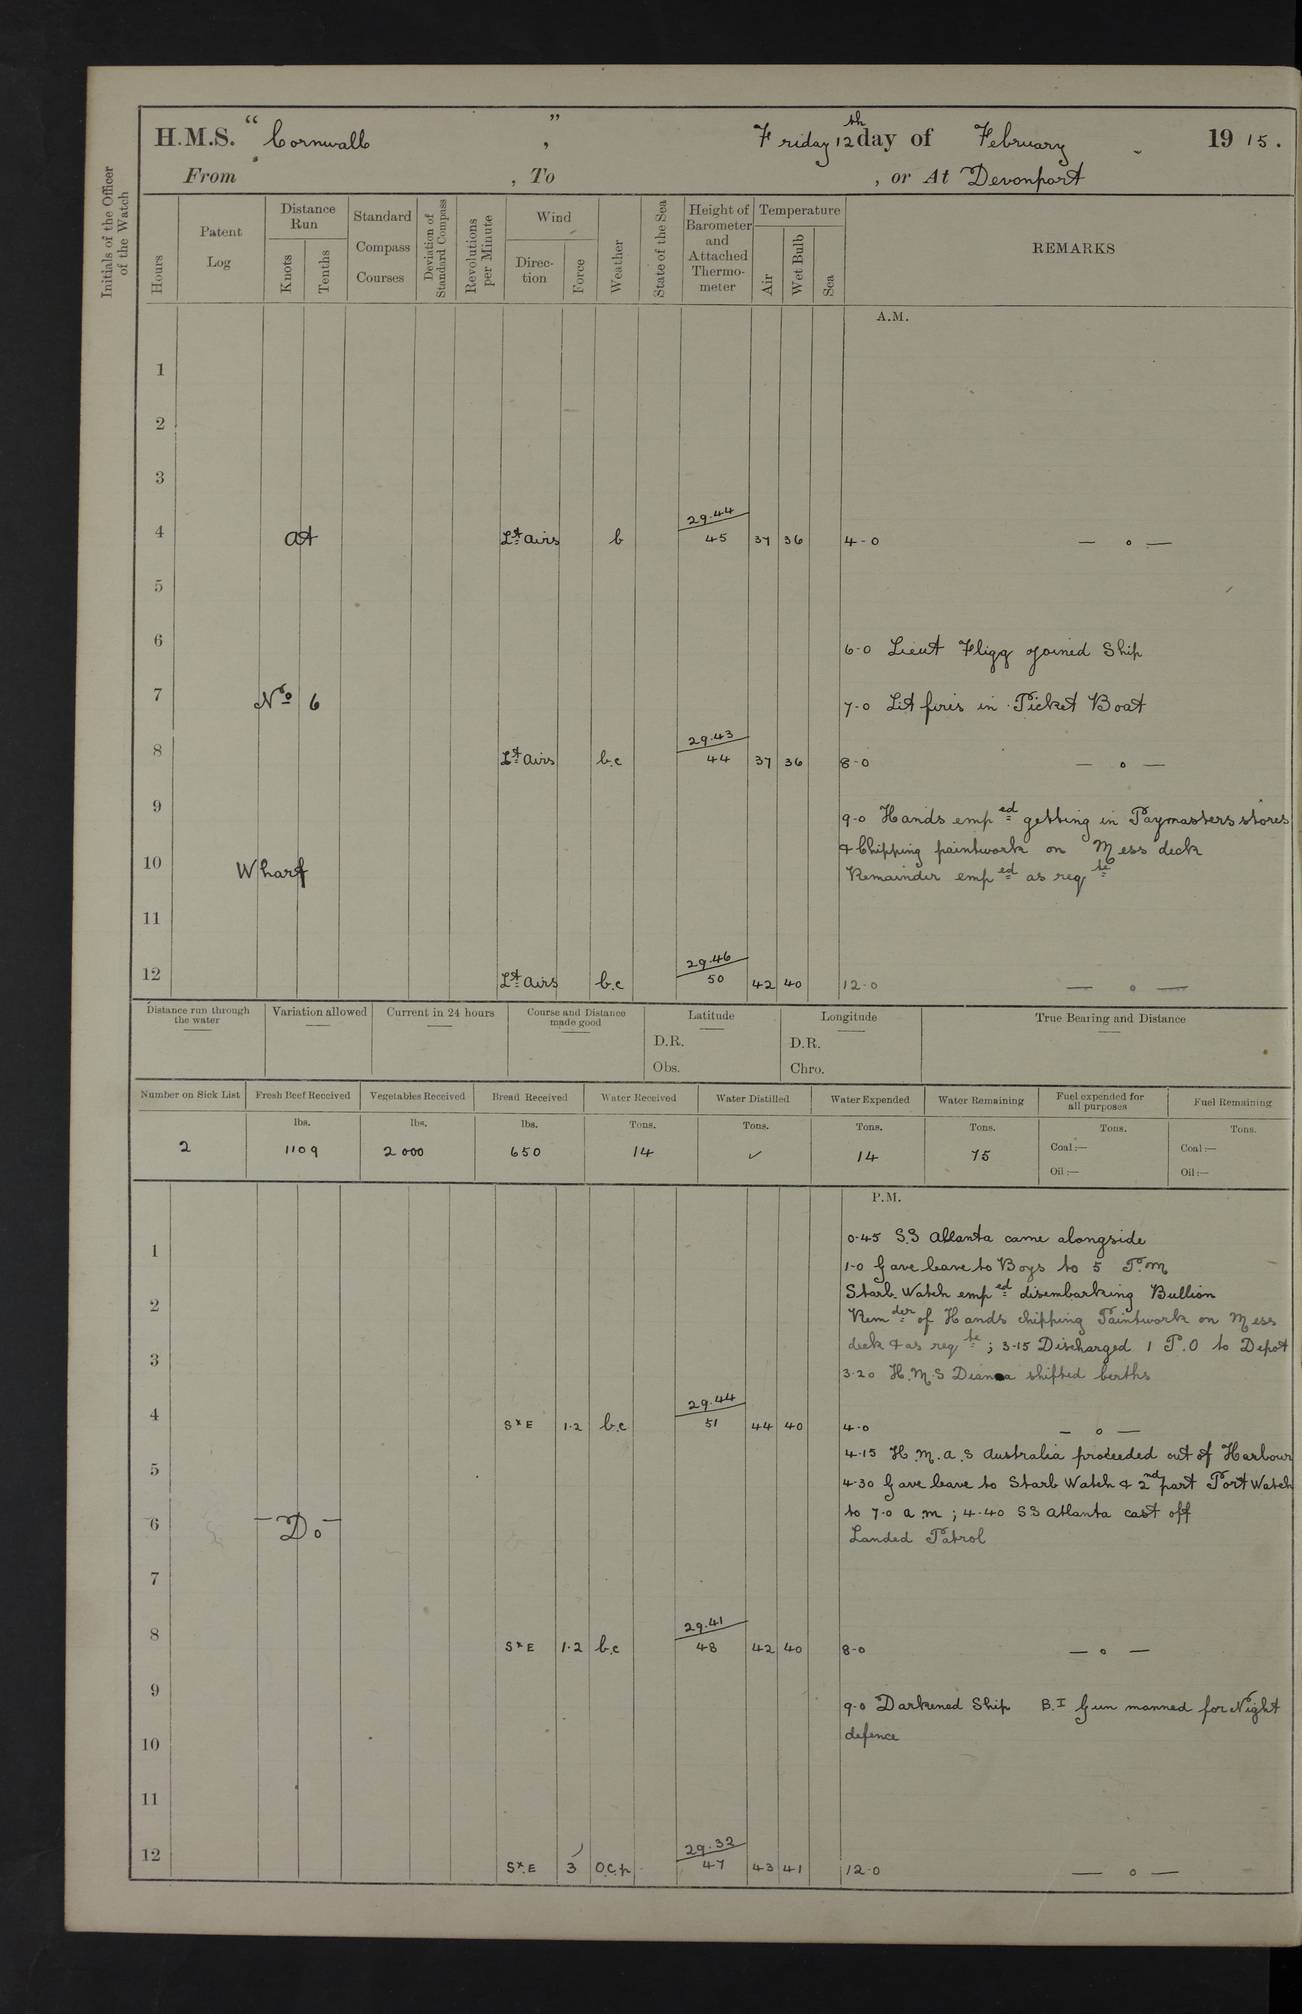 H.M.S. "Cornwall", Friday 12th day of February 1915.
From , To , or At Devonport
Initials of the Officer of the Watch
Hours
Patent Log
Distance Run
Knots
Tenths
Standard Compass Courses
Deviation of Standard Compass
Revolutions per Minute
Wind
Direction
Force
Weather
State of the Sea
Height of Barometer and Attached Thermometer
Temperature
Air
Wet Bulb
Sea
REMARKS
A.M.
1
2
3
4 at Lt airs b 29.44 45 37 36 4-0 — o —
5
6 6-0 Lieut Fligg joined Ship
7 No 6 7-0 Lit fires in Picket Boat
8 Lt airs b.c 29.43 44 37 36 8-0 — o —
9 9-0 Hands emp ed getting in Paymasters stores
& Chipping paintwork on Mess deck
10 Wharf Remainder emp ed as req te
11
12 Lt airs b.c 29.46 50 42 40 12-0 — o —
Distance run through the water
Variation allowed
Current in 24 hours
Course and Distance made good
Latitude
D.R.
Obs.
Longitude
D.R.
Chro.
True Bearing and Distance
Number on Sick List
Fresh Beef Received
Vegetables Received
Bread Received
Water Received
Water Distilled
Water Expended
Water Remaining
Fuel expended for all purposes
Fuel Remaining
lbs. lbs. lbs. Tons. Tons. Tons. Tons. Tons. Tons.
2 1109 2000 650 14 ✓ 14 75 Coal:— Coal:—
Oil:— Oil:—
P.M.
0-45 S.S Atlanta came alongside
1 1-0 Gave leave to Boys to 5 P.m
Starb. Watch emp ed disembarking Bullion
2 Rem der of Hands chipping Paintwork on Mess
3 deck & as req te ; 3-15 Discharged 1 P.O to Depot
3-20 H.M.S Diana shifted berths
4 SxE 1.2 b.c 29.44 51 44 40 4-0 — o —
4-15 H.M.A.S Australia proceeded out of Harbour
5 4-30 Gave leave to Starb Watch & 2nd part Port Watch
to 7-0 a.m ; 4-40 SS Atlanta cast off
6 -Do- Landed Patrol
7
8 SxE 1.2 b.c 29.41 48 42 40 8-0 — o —
9 9-0 Darkened Ship B.I Gun manned for Night
10 defence
11
12 SxE 3 o.c.p 29.32 47 43 41 12-0 — o —